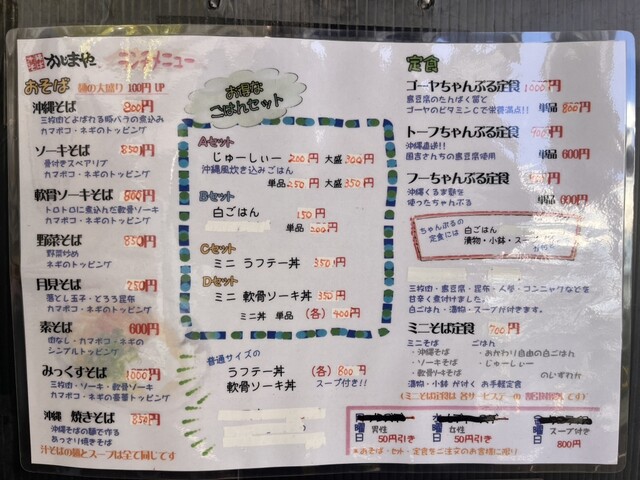 かじまや ランチメニュー
おそば 麺の大盛り 100円 UP
沖縄そば 800円
三枚肉とよばれる豚バラの煮込み
カマボコ・ネギのトッピング
ソーキそば 850円
骨付きスペアリブ
カマボコ・ネギのトッピング
軟骨ソーキそば 800円
トロトロに煮込んだ軟骨ソーキ
カマボコ・ネギのトッピング
野菜そば 850円
野菜炒め
ネギのトッピング
月見そば 250円
落とし玉子・とろろ昆布
カマボコ・ネギのトッピング
素そば 600円
肉なし・カマボコ・ネギの
シンプルトッピング
みっくすそば 1000円
三枚肉・ソーキ・軟骨ソーキ
カマボコ・ネギの豪華トッピング
沖縄 焼きそば 850円
沖縄そばの麺で作る
あっさり焼きそば
汁そばの麺とスープは全て同じです
お得な
ごはんセット
Aセット
じゅーしぃー 200円 大盛 300円
沖縄風炊き込みごはん
単品 250円 大盛 350円
Bセット
白ごはん 150円
単品 200円
Cセット
ミニ ラフテー丼 350円
Dセット
ミニ 軟骨ソーキ丼 350円
ミニ丼 単品 (各) 400円
普通サイズの
ラフテー丼 (各) 800円
軟骨ソーキ丼 スープ付き!!
定食
ゴーヤちゃんぷる定食 1000円
島豆腐のたんぱく質と
ゴーヤのビタミンCで栄養満点!! 単品 800円
トーフちゃんぷる定食 900円
沖縄直送!!
島豆腐使用 単品 600円
フーちゃんぷる定食
沖縄くるま麩を
使ったちゃんぷる 単品 600円
ちゃんぷるの 白ごはん
定食には 漬物・小鉢・スープ
三枚肉・島豆腐・昆布・人参・コンニャクなどを
甘辛く煮付けました。
白ごはん・漬物・スープが付きます。
ミニそば定食 700円
ミニそば ごはん
・沖縄そば ・おかわり自由の白ごはん
・ソーキそば ・じゅーしぃー
・軟骨ソーキそば のいずれか
漬物・小鉢 が付く お手軽定食
(ミニそば定食は 各サービスデーの 割引対象外です)
曜日 男性 50円引き
曜日 女性 50円引き
曜日 スープ付き 800円
※おそば・セット・定食をご注文のお客様に限り